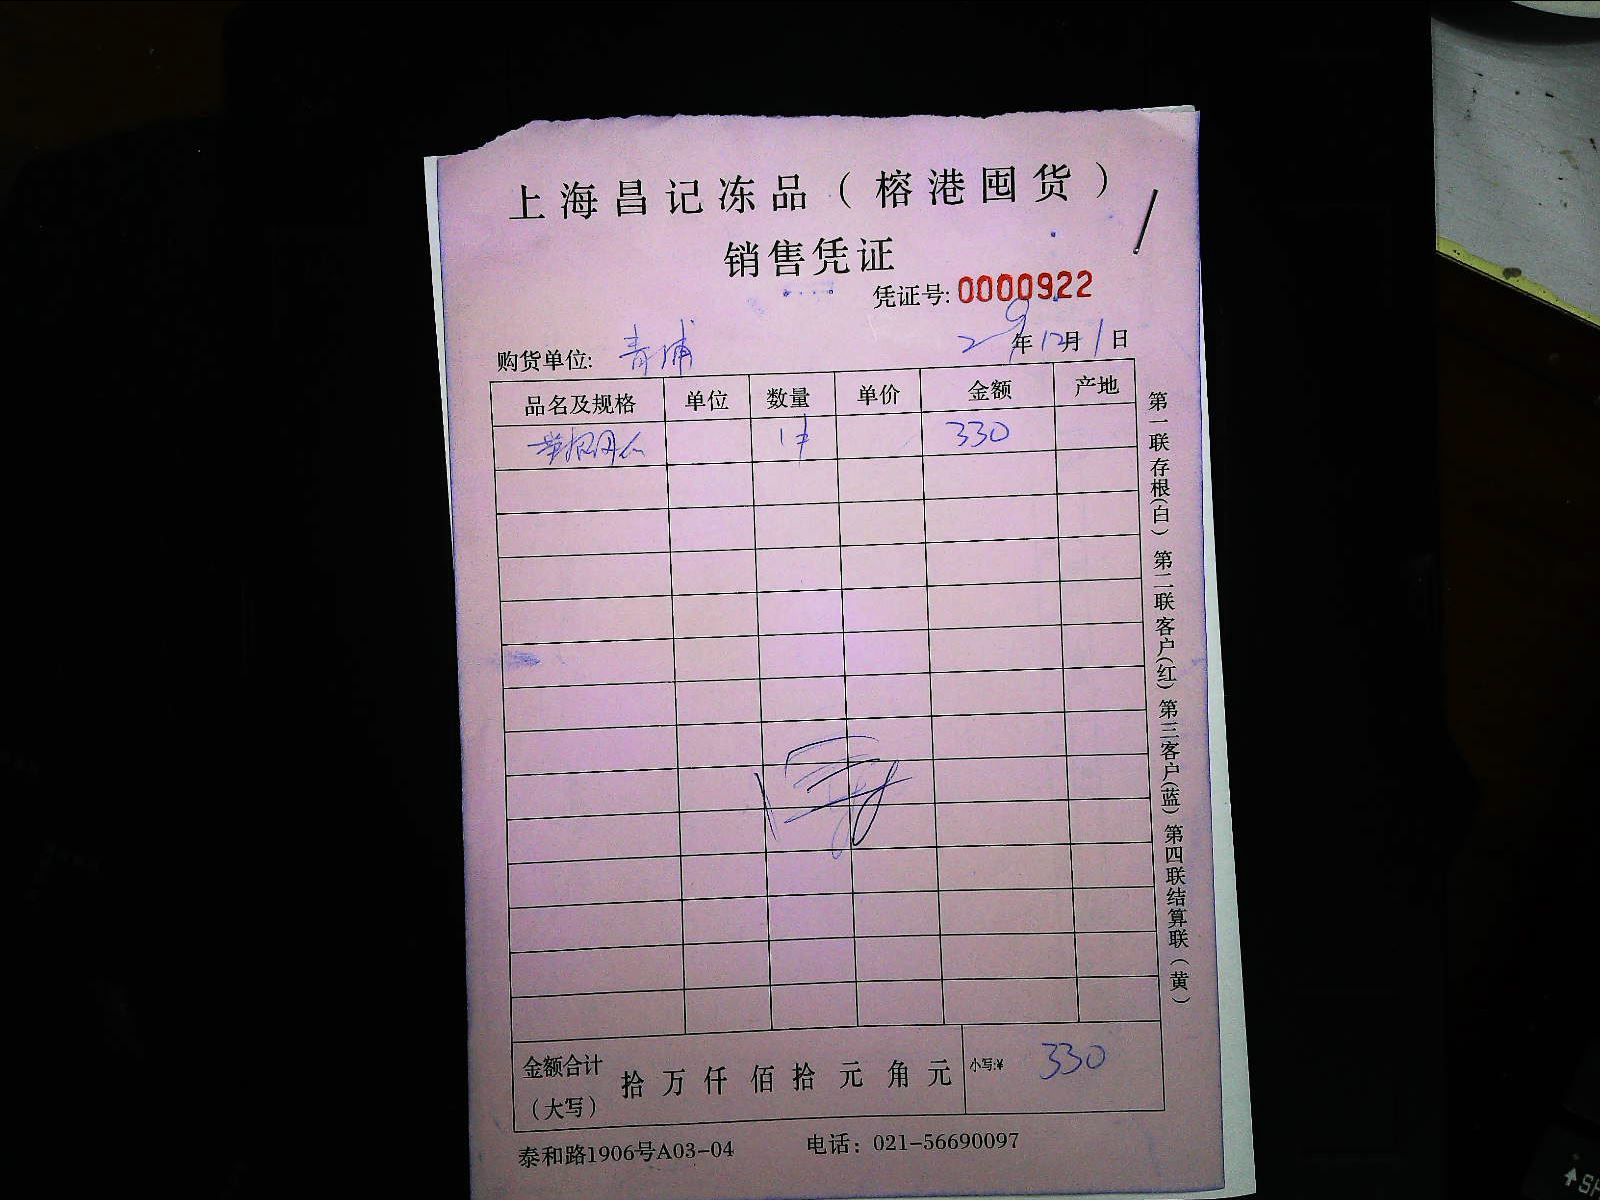 上海昌记冻品（榕港囤货）
销售凭证
凭证号: 0000922
购货单位: 青浦 29年12月1日
品名及规格 单位 数量 单价 金额 产地
1件 330
金额合计（大写） 拾 万 仟 佰 拾 元 角 元 小写:¥ 330
泰和路1906号A03-04 电话：021-56690097
第一联存根(白) 第二联客户(红) 第三客户(蓝) 第四联结算联（黄）